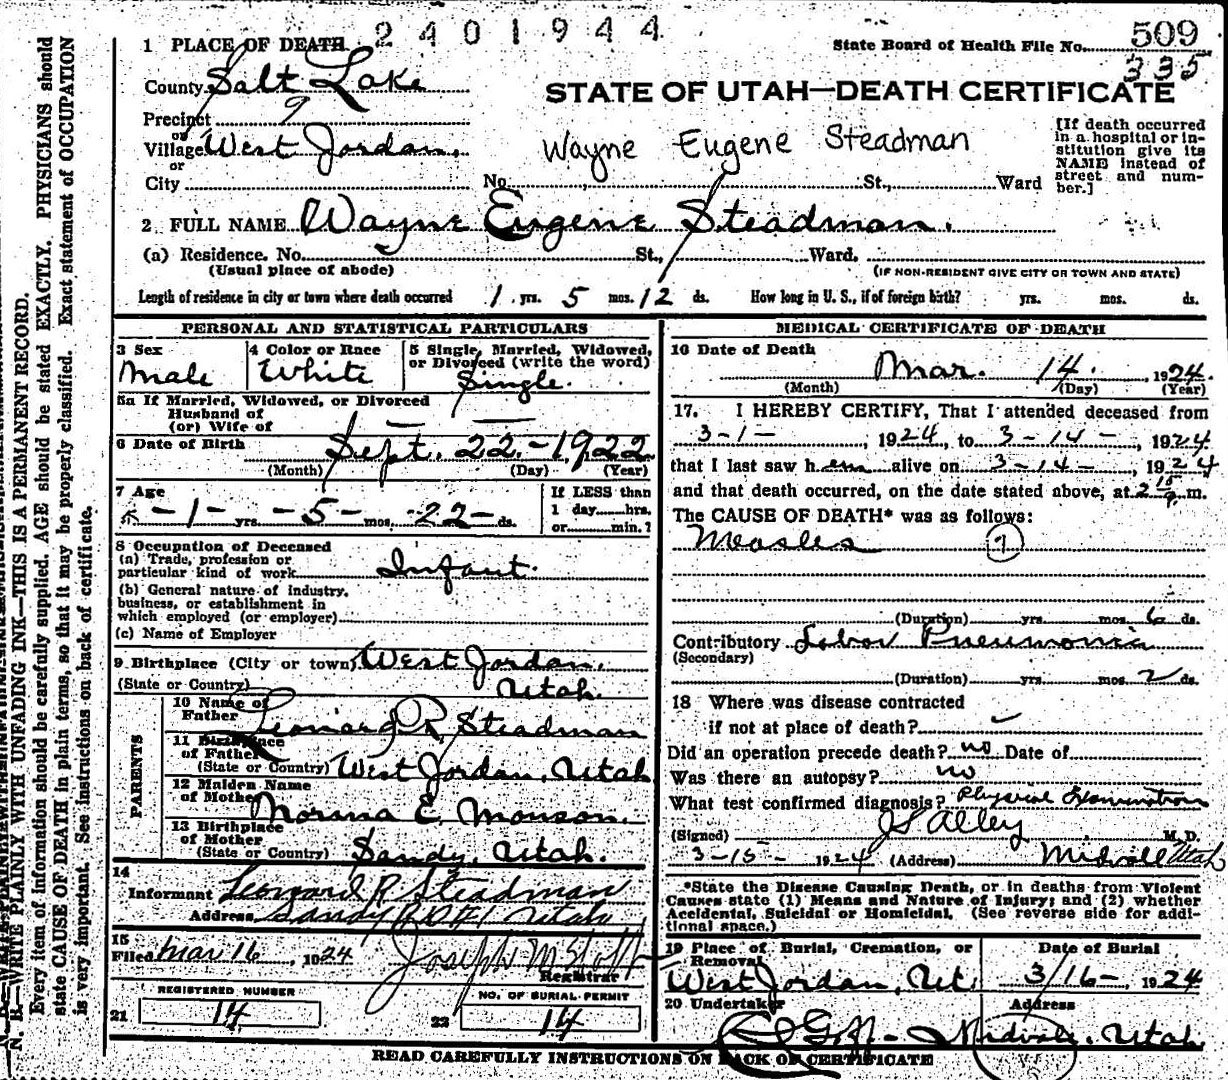 2401944
State Board of Health File No. 509
335
1 PLACE OF DEATH
County Salt Lake
STATE OF UTAH—DEATH CERTIFICATE
Precinct 9
or
Village West Jordan.
or
City
Wayne Eugene Steadman
No. St., Ward
[If death occurred
in a hospital or in-
stitution give its
NAME instead of
street and num-
ber.]
2. FULL NAME Wayne Eugene Steadman.
(a) Residence. No. St., Ward.
(Usual place of abode)
(IF NON-RESIDENT GIVE CITY OR TOWN AND STATE)
Length of residence in city or town where death occurred 1 yrs. 5 mos. 12 ds. How long in U. S., if of foreign birth? yrs. mos. ds.
PERSONAL AND STATISTICAL PARTICULARS
3 Sex
Male
4 Color or Race
White
5 Single, Married, Widowed,
or Divorced (write the word)
Single.
5a If Married, Widowed, or Divorced
Husband of
(or) Wife of
6 Date of Birth Sept. 22-1922
(Month) (Day) (Year)
7 Age
-1- yrs. -5- mos. -22- ds.
If LESS than
1 day hrs.
or min.?
8 Occupation of Deceased
(a) Trade, profession or
particular kind of work Infant.
(b) General nature of industry,
business, or establishment in
which employed (or employer)
(c) Name of Employer
9 Birthplace (City or town) West Jordan.
(State or Country) Utah.
PARENTS
10 Name of
Father Leonard R Steadman
11 Birthplace
of Father
(State or Country) West Jordan, Utah
12 Maiden Name
of Mother Norma E. Monson.
13 Birthplace
of Mother
(State or Country) Sandy, Utah.
14
Informant Leonard R Steadman
Address Sandy Utah
15
Filed Mar 16, 1924 Joseph M
Registrar
REGISTERED NUMBER
21 14
NO. OF BURIAL PERMIT
22 14
MEDICAL CERTIFICATE OF DEATH
16 Date of Death
Mar. 14. , 1924.
(Month) (Day) (Year)
17. I HEREBY CERTIFY, That I attended deceased from
3-1- , 1924, to 3-14- , 1924
that I last saw h em alive on 3-14- , 1924
and that death occurred, on the date stated above, at 2 15 m.
The CAUSE OF DEATH* was as follows:
Measles 7
(Duration) yrs. mos. 6 ds.
Contributory Lobar Pneumonia
(Secondary)
(Duration) yrs. mos. 2 ds.
18 Where was disease contracted
if not at place of death?
Did an operation precede death? no Date of
Was there an autopsy? no
What test confirmed diagnosis? Physical Examination
(Signed) JS Alley M. D.
3-15- 1924 (Address) Midvale Utah
*State the Disease Causing Death, or in deaths from Violent
Causes state (1) Means and Nature of Injury; and (2) whether
Accidental, Suicidal or Homicidal. (See reverse side for addi-
tional space.)
19 Place of Burial, Cremation, or
Removal
West Jordan, Ut.
Date of Burial
3/16- 1924
20 Undertaker
Address
Midvale, Utah
READ CAREFULLY INSTRUCTIONS ON BACK OF CERTIFICATE
N. B.—WRITE PLAINLY WITH UNFADING INK—THIS IS A PERMANENT RECORD.
Every item of information should be carefully supplied. AGE should be stated EXACTLY. PHYSICIANS should
state CAUSE OF DEATH in plain terms, so that it may be properly classified. Exact statement of OCCUPATION
is very important. See instructions on back of certificate.